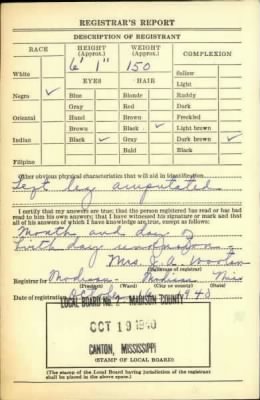 REGISTRAR'S REPORT
DESCRIPTION OF REGISTRANT
RACE HEIGHT (Approx.) WEIGHT (Approx.) COMPLEXION
6' 1" 150
White Sallow
EYES HAIR Light
Negro ✓ Blue Blonde Ruddy
Gray Red Dark
Oriental Hazel Brown Freckled
Brown Black ✓ Light brown
Indian Black ✓ Gray Dark brown ✓
Bald Black
Filipino
Other obvious physical characteristics that will aid in identification
Left leg amputated
I certify that my answers are true; that the person registered has read or has had
read to him his own answers; that I have witnessed his signature or mark and that
all of his answers of which I have knowledge are true, except as follows:
Month and day of
birth day unknown
Mrs. J. A. Wooten
(Signature of registrar)
Registrar for Madison Madison Miss
(Precinct) (Ward) (City or county) (State)
Date of registration Oct 16 1940
LOCAL BOARD No. 2 MADISON COUNTY
OCT 19 1940
CANTON, MISSISSIPPI
(STAMP OF LOCAL BOARD)
(The stamp of the Local Board having jurisdiction of the registrant
shall be placed in the above space.)